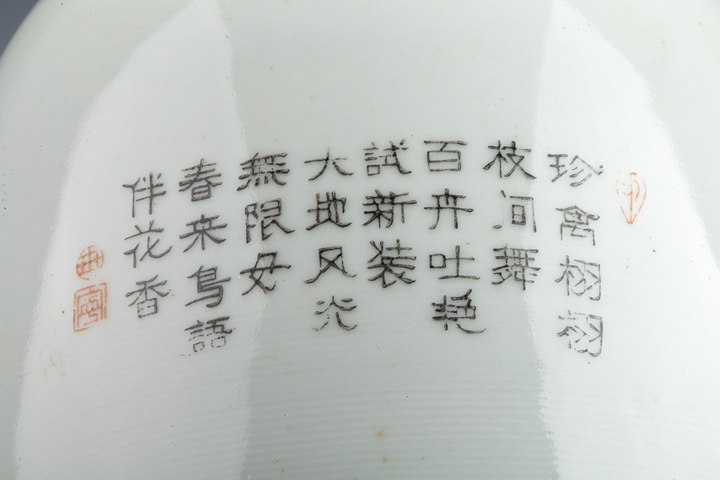 珍禽栩栩
枝间舞
百卉吐艳
試新装
大地风光
無限好
春来鳥語
伴花香